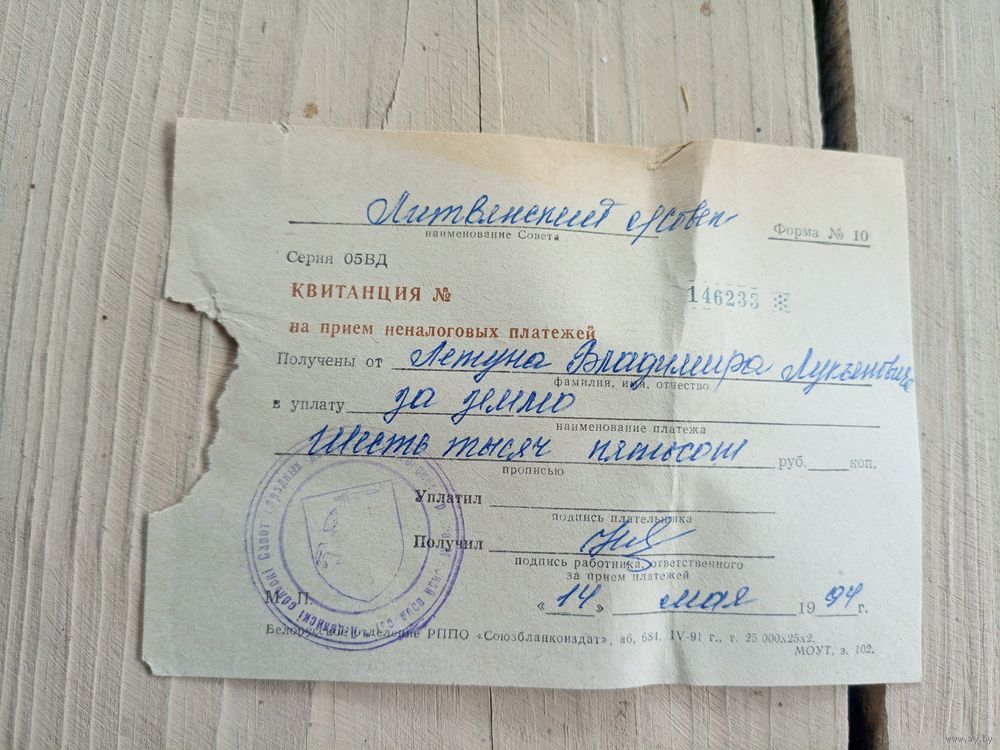 Литвянский с/совет
наименование Совета
Форма № 10
Серия 05ВД
КВИТАНЦИЯ №
146233
на прием неналоговых платежей
Получены от Летуна Владимира Лукьяновича
фамилия, имя, отчество
в уплату за землю
наименование платежа
Шесть тысяч пятьсот руб. коп.
прописью
Уплатил
подпись плательщика
Получил
подпись работника, ответственного
за прием платежей
М. П.
«14» мая 1994 г.
Белорусское отделение РППО «Союзбланкоиздат», аб, 684, IV-91 г., т. 25 000х25х2.
МОУТ, з. 102.
Літвянскі сельскі Савет
www.ay.by